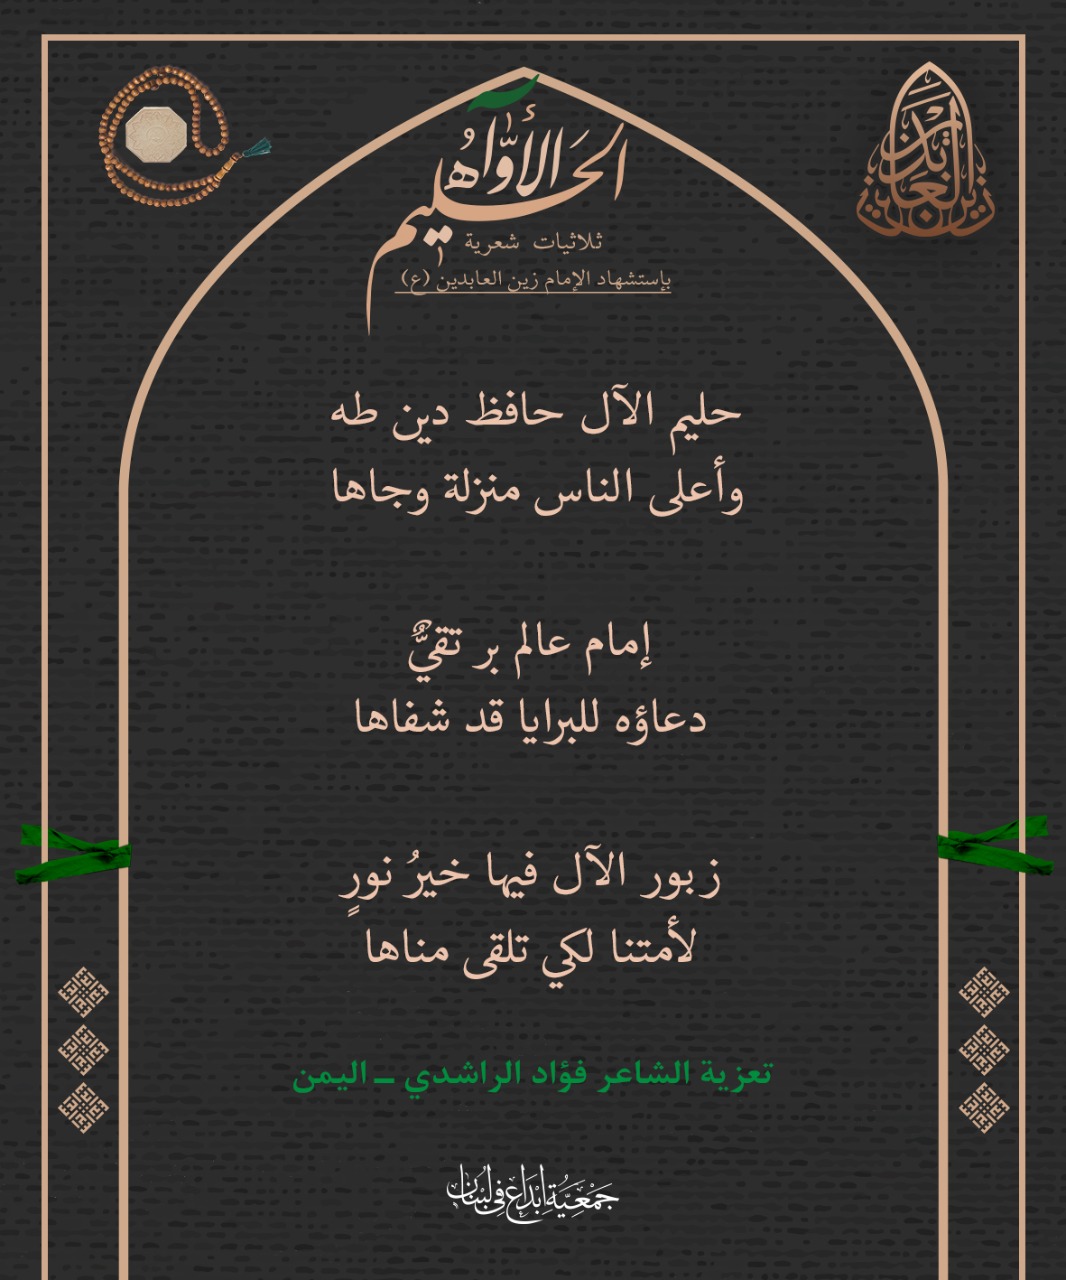 زين العابدين
الأوّاه الحليم
ثلاثيات شعرية
بإستشهاد الإمام زين العابدين (ع)
حليم الآل حافظ دين طه
وأعلى الناس منزلة وجاها
إمام عالم بر تقيٌّ
دعاؤه للبرايا قد شفاها
زبور الآل فيها خيرُ نورٍ
لأمتنا لكي تلقى مناها
تعزية الشاعر فؤاد الراشدي ــ اليمن
جَمْعِيَّةُ إبْدَاع فِي لُبْنَان